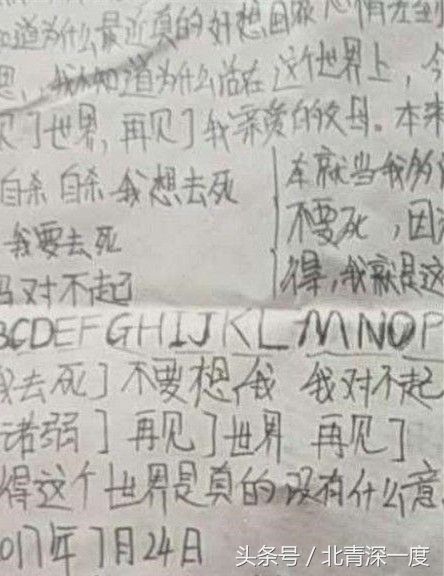 道为什么最近真的好想回
我不知道为什么活在这个世界上,
见了世界,再见了我亲爱的父母。本来
自杀 自杀 我想去死
我要去死
对不起
本就当我
不要死,因
得,我就是这
BCDEFGHIJKLMNOP
我去死了 不要想我 我对不起
诺弱了 再见了世界 再见了
得这个世界是真的没有什么意
017年7月24日
头条号/北青深一度